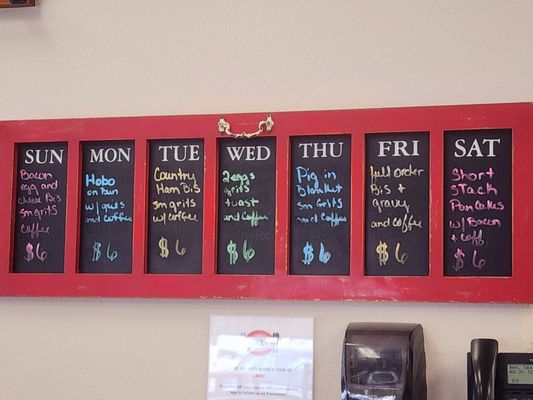 SUN
Bacon
egg and
cheese Bis
sm grits
coffee
$6
MON
Hobo
on Bun
w/ grits
and coffee
$6
TUE
Country
Ham Bis
sm grits
w/ coffee
$6
WED
2 eggs
grits
toast
and coffee
$6
THU
Pig in
Blanket
sm Grits
and coffee
$6
FRI
full order
Bis +
gravy
and coffee
$6
SAT
Short
Stack
Pancakes
w/ Bacon
+ coff
$6